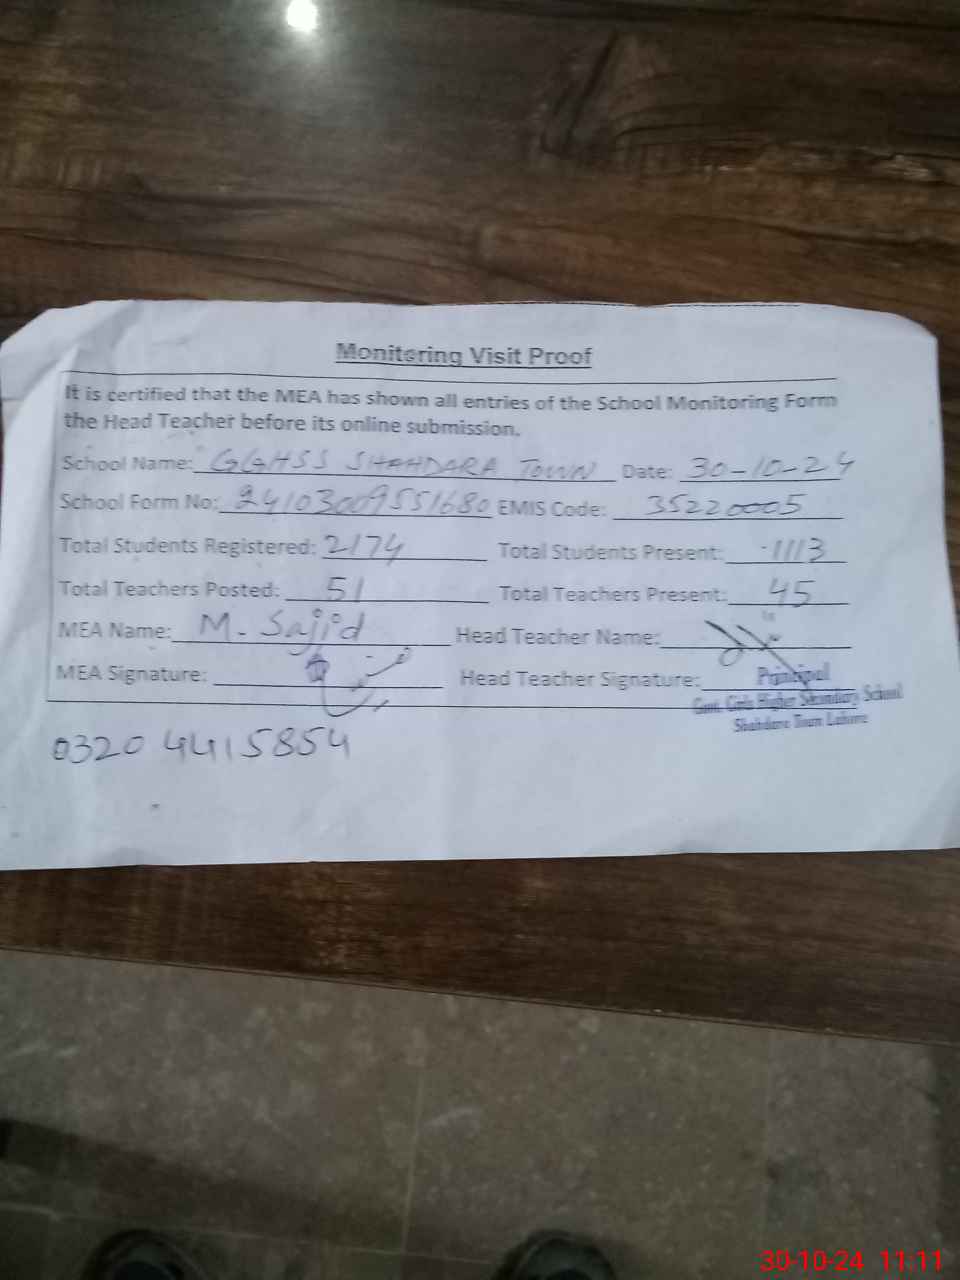 Monitoring Visit Proof
It is certified that the MEA has shown all entries of the School Monitoring Form
the Head Teacher before its online submission.
School Name: GGHSS SHAHDARA TOWN Date: 30-10-24
School Form No: 24103009551680 EMIS Code: 35220005
Total Students Registered: 2174 Total Students Present: 1113
Total Teachers Posted: 51 Total Teachers Present: 45
MEA Name: M. Sajid Head Teacher Name:
MEA Signature: Head Teacher Signature:
Principal
Govt. Girls Higher Secondary School
Shahdara Town Lahore
0320 4415854
30-10-24 11:11